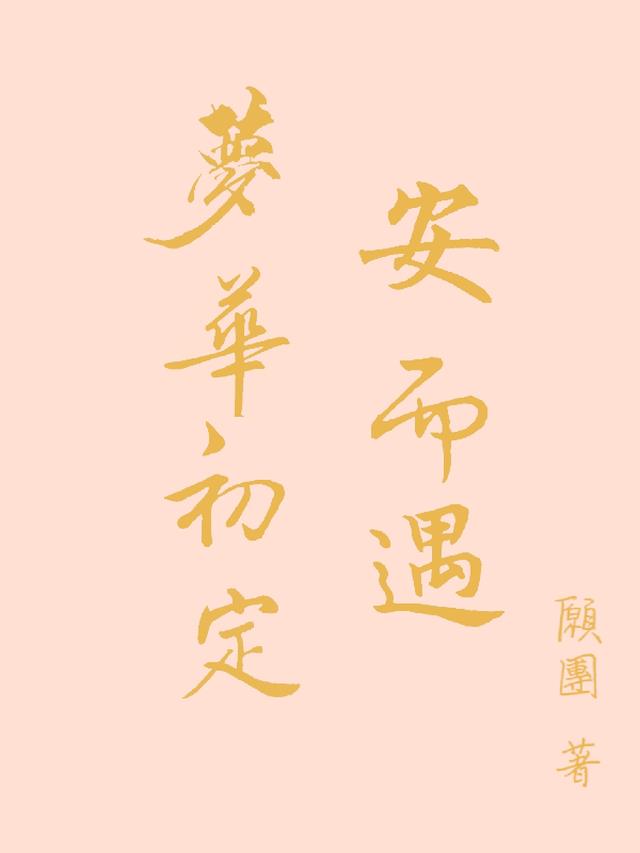 安而遇
夢華初定
願團 著